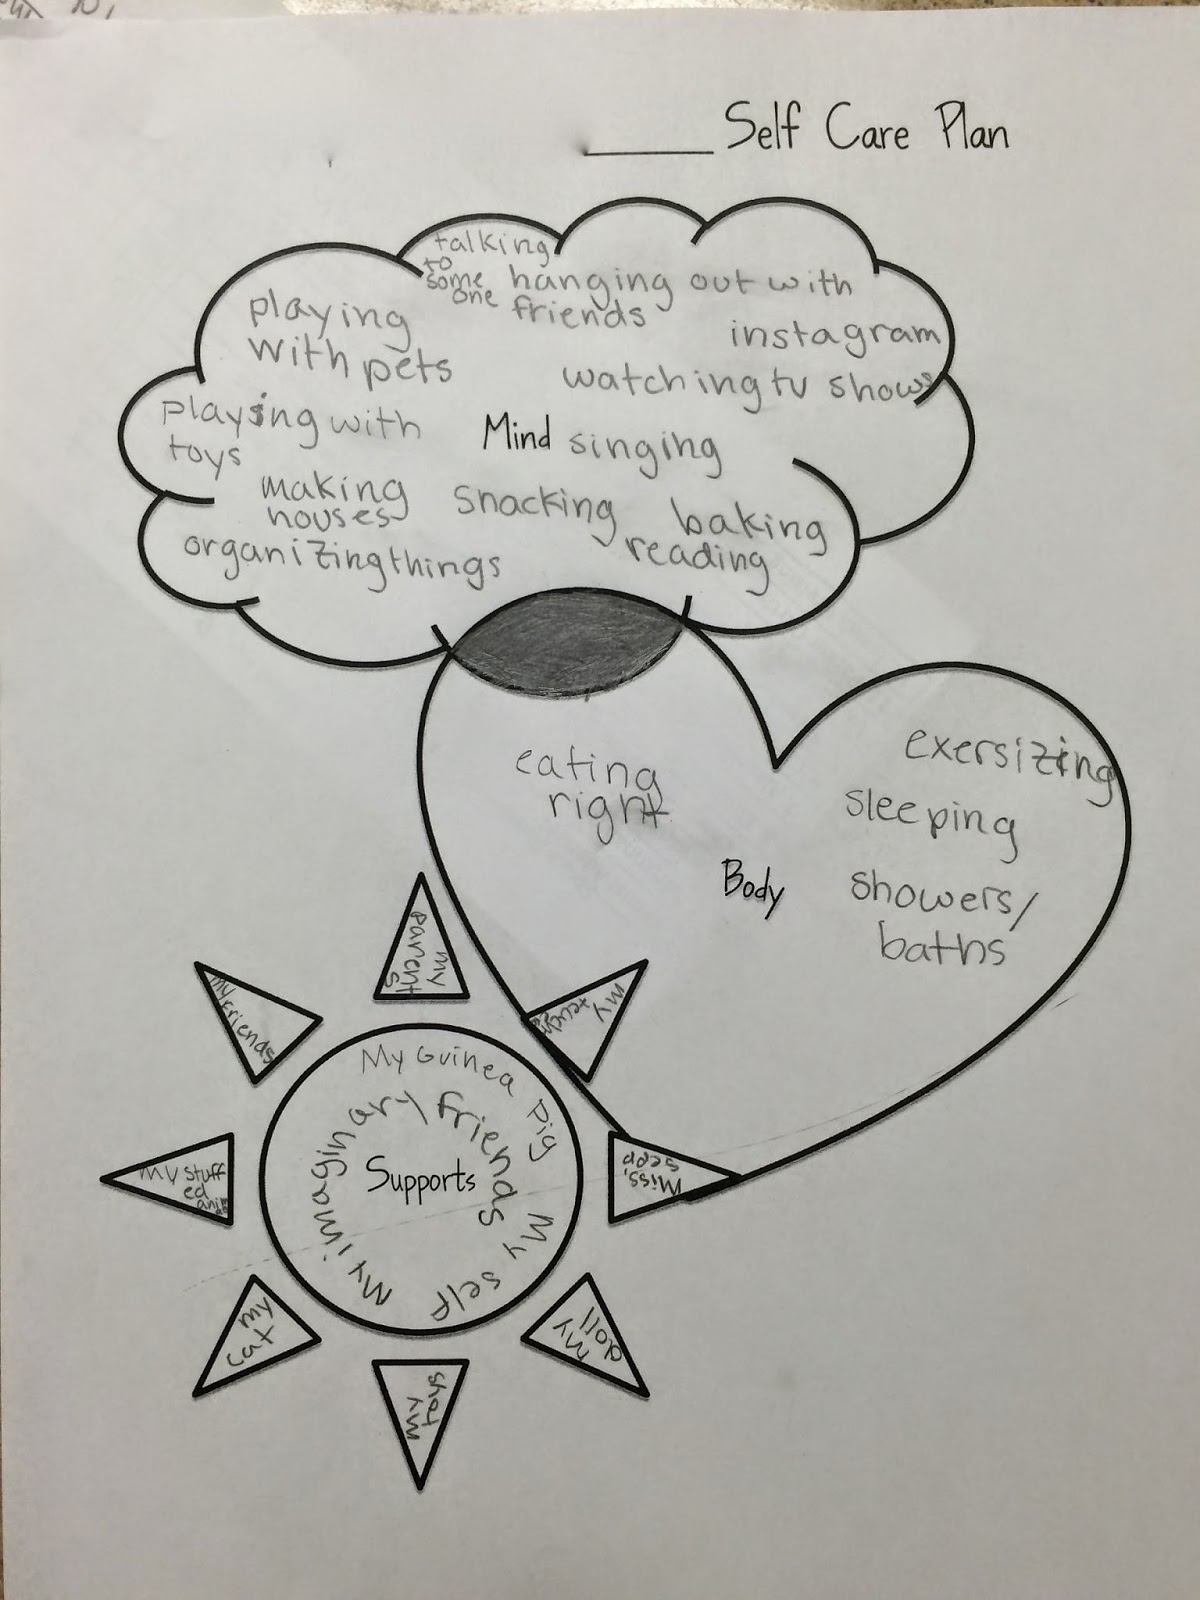 Self Care Plan
talking
to
some
one
hanging out with
friends
playing
with pets
instagram
watching tv shows
playing with
toys
Mind
singing
making
houses
snacking
baking
reading
organizing things
eating
right
exersizing
sleeping
Body
showers/
baths
my
parents
my friends
my
My Guinea Pig
My imaginary friends
My self
Supports
my stuff
ed
Miss.
my
cat
my
toys
my
doll